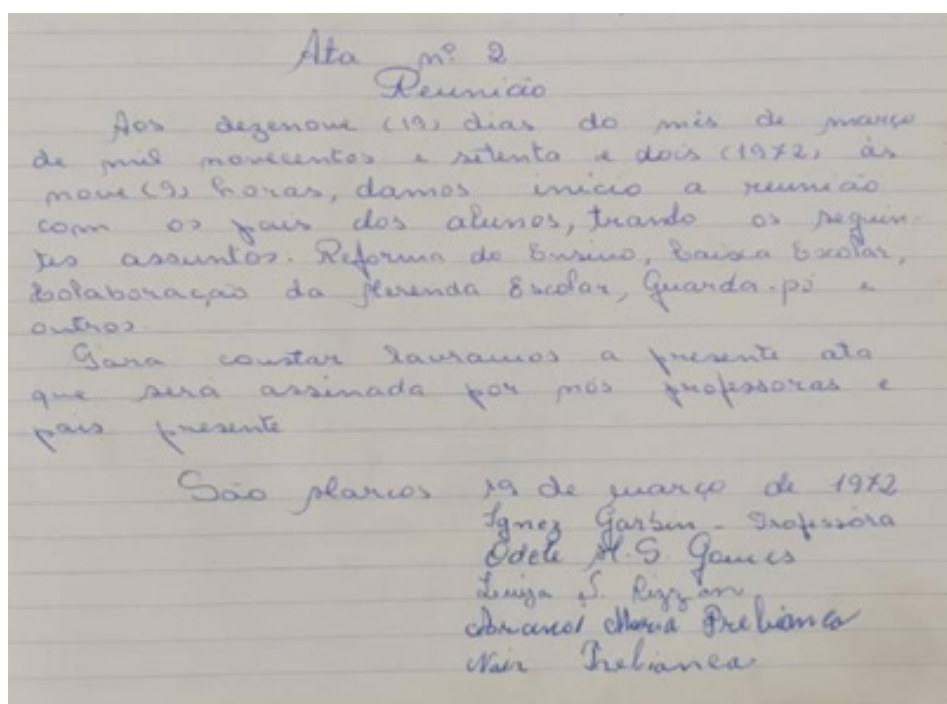 Ata nº 2
Reunião
Aos dezenove (19) dias do mês de março
de mil novecentos e setenta e dois (1972) às
nove (9) horas, damos inicio a reunião
com os pais dos alunos, trando os seguin-
tes assuntos. Reforma do Ensino, Caixa Escolar,
Colaboração da Merenda Escolar, Guarda-pó e
outros.
Para constar lavramos a presente ata
que será assinada por nós professoras e
pais presente
São Marcos 19 de março de 1972
Ignez Garbin - Professora
Odete M. S. Gomes
Luiza S. Rizzon
Maria Prebianca
Nair Prebianca